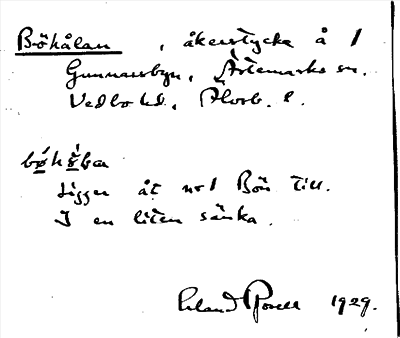 Böhålan, åkerstycke å 1
Gunnarsbyn, Ärtemarks sn.
Vedbo hd., Älvsb. l.
Ligger åt nr 1 Bön till.
I en liten sänka.
Erland Rosell 1929.